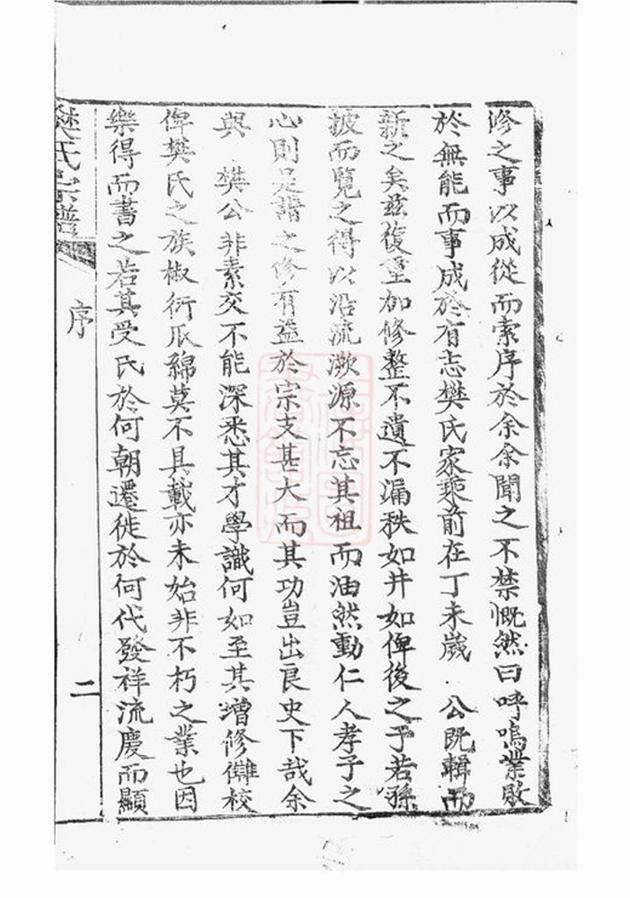 修之事以成從而索序於余余聞之不禁慨然曰呼嗚業敗
於無能而事成於有志樊氏家乘前在丁未歲 公既輯而
新之矣茲復重加修整不遺不漏秩如井如俾後之子若孫
披而覽之得以沿流溯源不忘其祖而油然動仁人孝子之
心則是譜之修有益於宗支甚大而其功豈出良史下哉余
與 樊公非素交不能深悉其才學識何如至其增修讎校
俾樊氏之族椒衍瓜綿莫不具載亦未始非不朽之業也因
樂得而書之若其受氏於何朝遷徙於何代發祥流慶而顯
樊氏宗譜
序
二